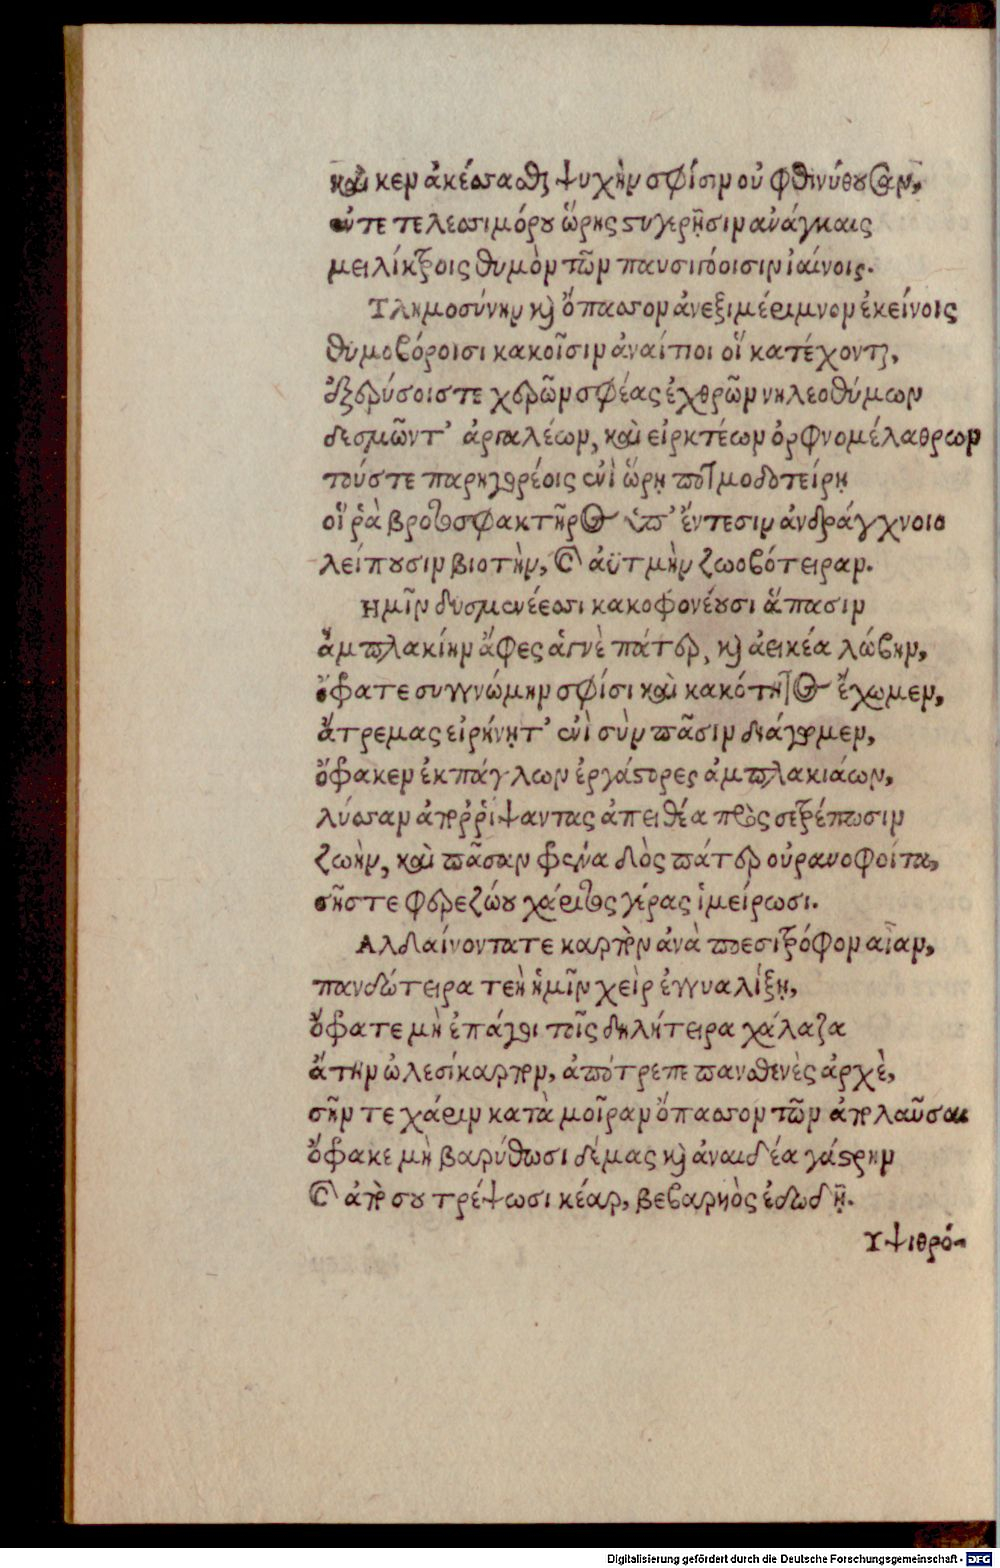 καί κεν ἀκέσσασθαι ψυχὴν σφίσιν οὐ φθινύθουσαν,
εὖτε τελεσσιμόρου ὥρης στυγερῇσιν ἀνάγκαις
μειλίκτροις θυμὸν τῶν παυσιπόοισιν ἰαίνοις.
Τλημοσύνην καὶ ὄπασσον ἀνεξιμέριμνον ἐκείνοις
θυμοβόροισι κακοῖσιν ἀναίτιοι οἵ κατέχονται,
ἐξερύσοις τε χερῶν σφέας ἐχθρῶν νηλεοθύμων
δεσμῶν τ' ἀργαλέων, καὶ εἱρκτέων ὀρφνομέλαθρων
τούς τε παρηγορέοις ἐνὶ ὥρῃ ποτμοδοτείρῃ
οἵ ῥὰ βροτοσφακτῆρος ὑπ' ἔντεσιν ἀνδράγχνοιο
λείπουσιν βιοτὴν, καὶ ἀϋτμὴν ζωοβότειραν.
Ημῖν δυσμενέεσσι κακοφονέουσι ἅπασιν
ἀμπλακίην ἄφες ἁγνὲ πάτερ, καὶ ἀεικέα λώβην,
ὄφρα τε συγγνώμην σφίσι καὶ κακότητος ἔχωμεν,
ἄτρεμας εἰρήνῃ τ' ἐνὶ σὺν πᾶσιν διάγωμεν,
ὄφρα κεν ἐκπάγλων ἐργάστορες ἀμπλακιάων,
λύσσαν ἀπορρίψαντας ἀπειθέα πρὸς σε τρέπωσιν
ζωὴν, καὶ πᾶσαν φρένα δὸς πάτερ οὐρανοφοίτα,
σῆς τε φερεζώου χάριτος γέρας ἱμείρωσι.
Αλδαίνοντα τε καρπὸν ἀνὰ ποεσιτρόφον αἶαν,
πανδώτειρα τεὴ ἡμῖν χεὶρ ἐγγυαλίξῃ,
ὄφρα τε μὴ ἐπάγοι τοῖς δηλήτειρα χάλαζα
ἄτην ὠλεσίκαρπον, ἀπότρεπε πανσθενὲς ἀρχὲ,
σήν τε χάριν κατὰ μοῖραν ὄπασσον τῶν ἀπολαῦσαι
ὄφρα κε μὴ βαρύθωσι δέμας καὶ ἀναιδέα γάστρην
καὶ ἀπὸ σου τρέψωσι κέαρ, βεβαρηὸς ἐδωδῇ.
Υψιθρό-
Digitalisierung gefördert durch die Deutsche Forschungsgemeinschaft - DFG